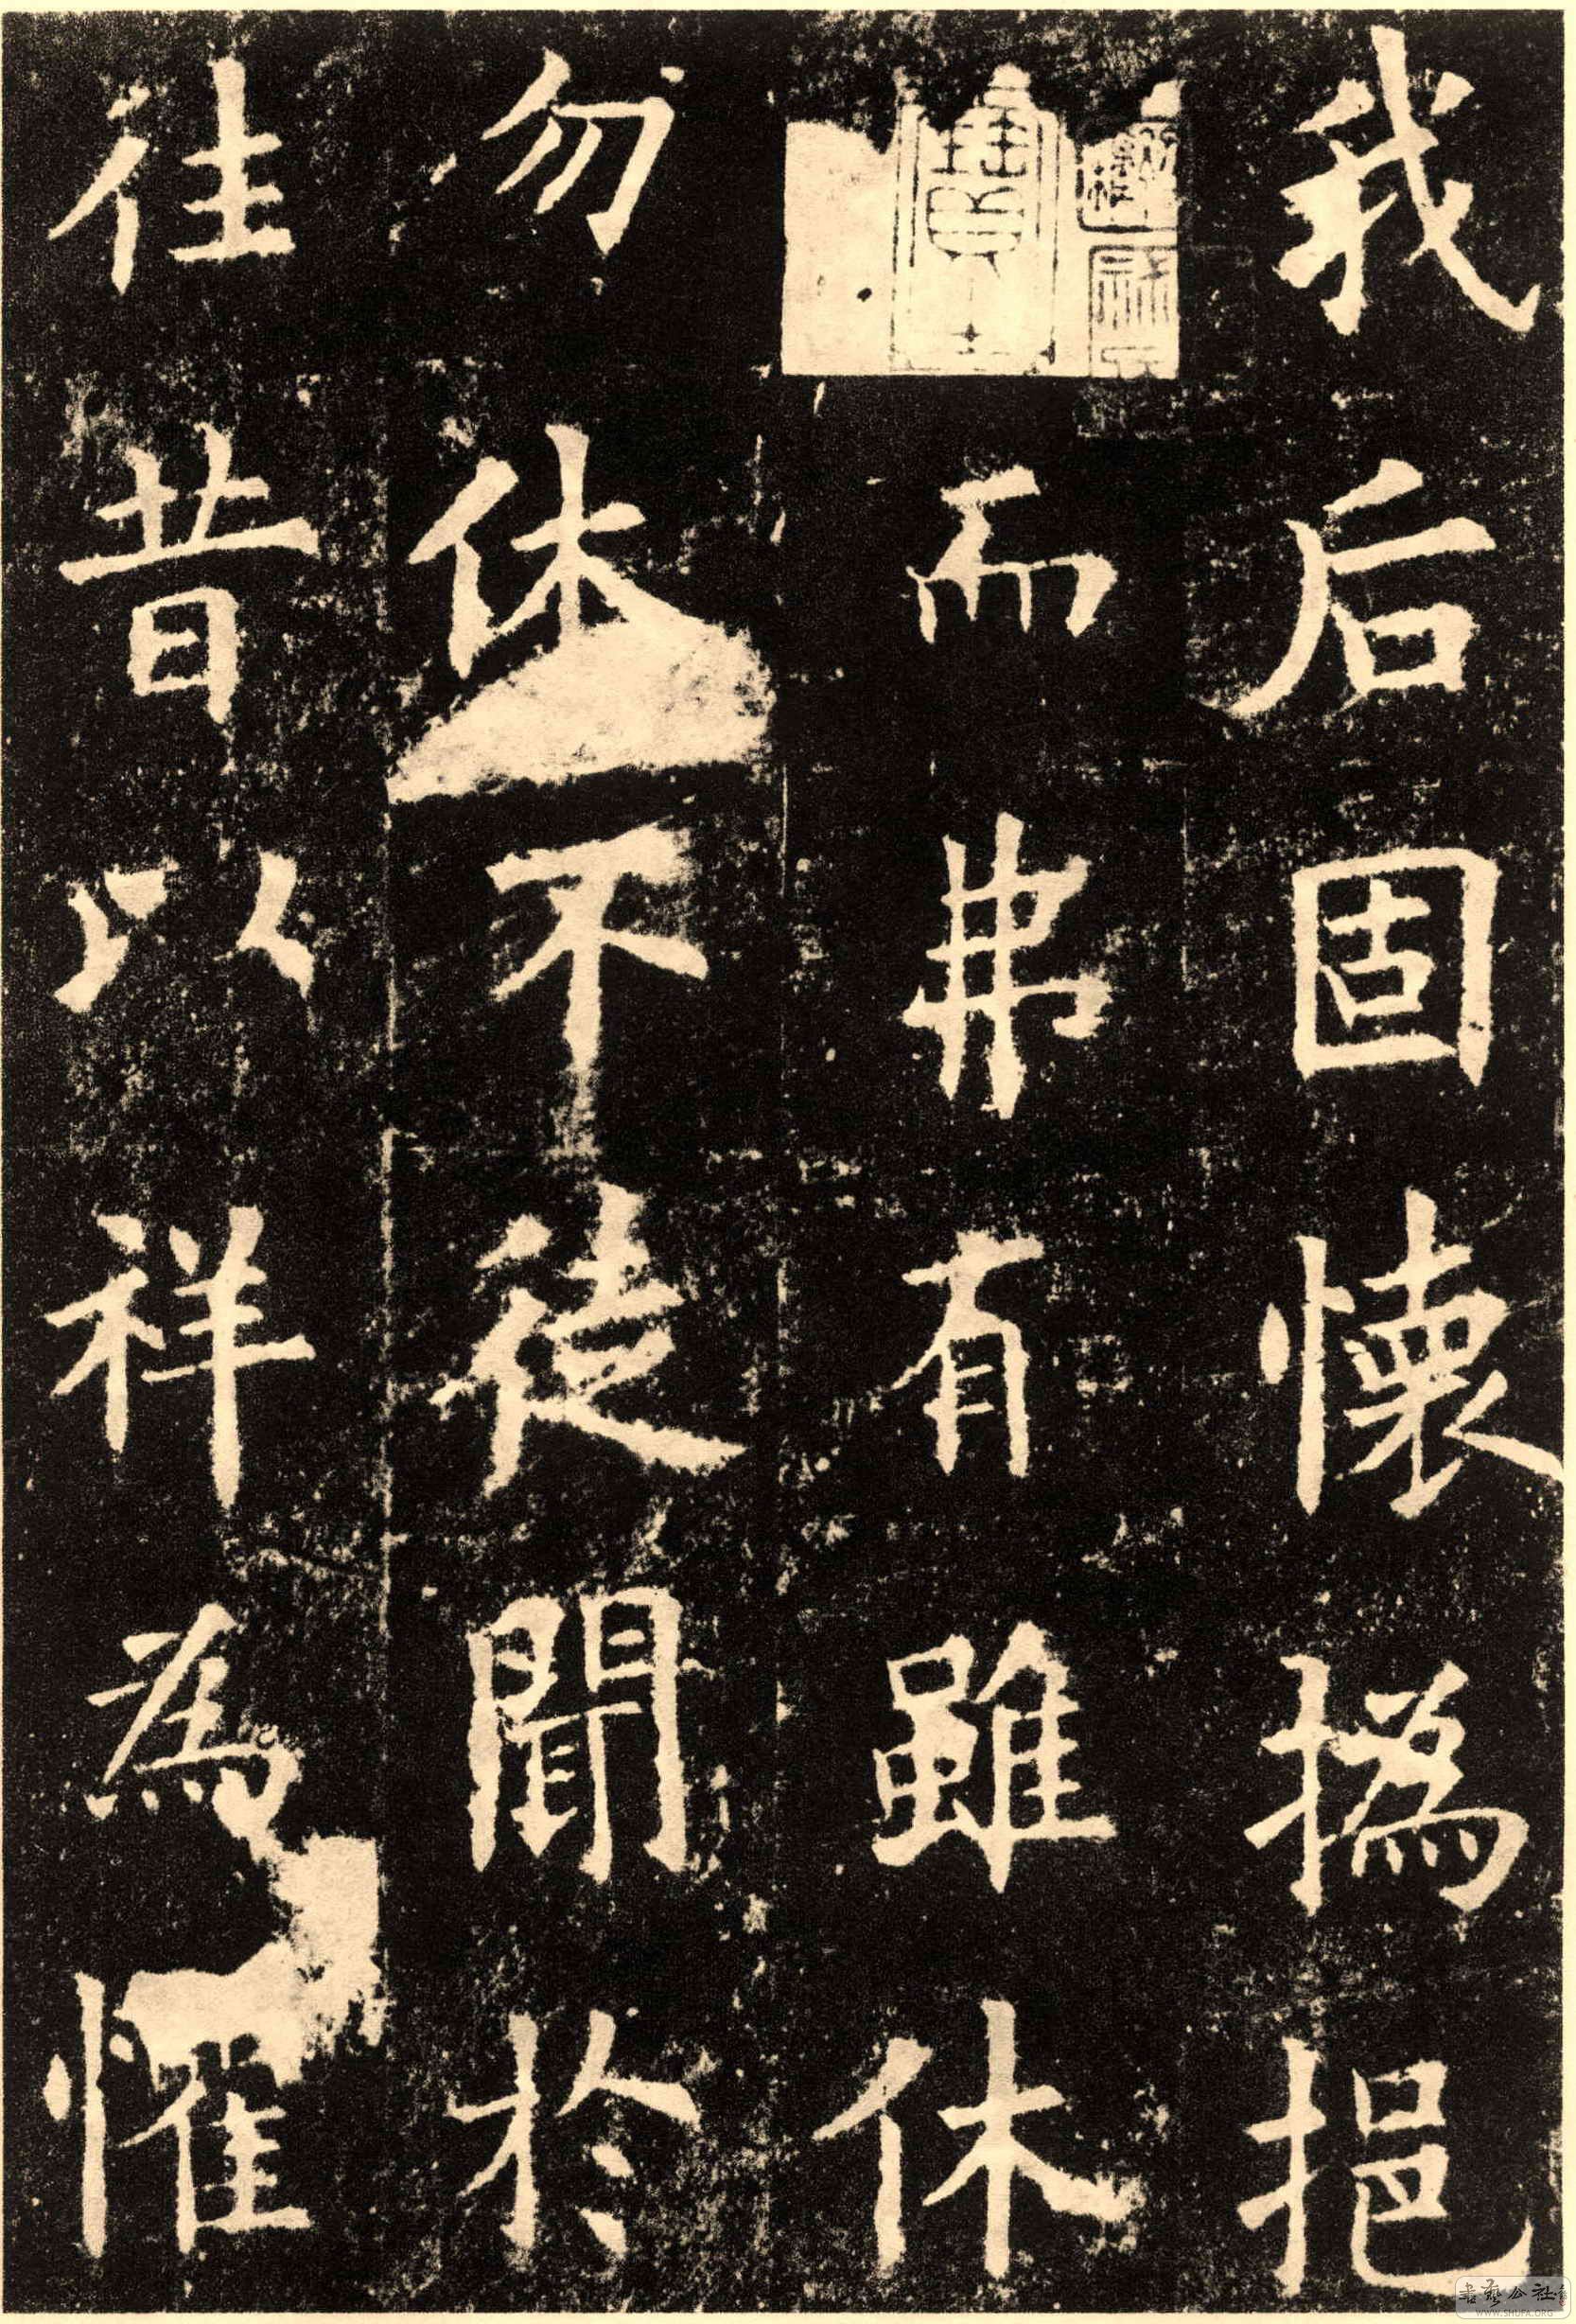 我后固懷撝挹
而弗有雖休
勿休不徒聞於
往昔以祥為懼
書藝公社
WWW.SHUFA.ORG